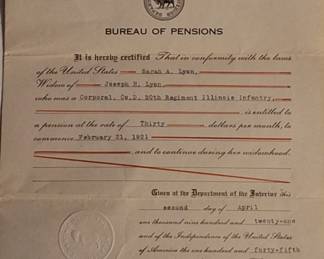 BUREAU OF PENSIONS
It is hereby certified That in conformity with the laws
of the United States Sarah A. Lyon,
Widow of Joseph H. Lyon
who was a Corporal, Co.D. 50th Regiment Illinois Infantry,
is entitled to
a pension at the rate of Thirty dollars per month, to
commence February 21, 1921
and to continue during her widowhood.
Given at the Department of the Interior this
second day of April
one thousand nine hundred and twenty-one
and of the Independence of the United States
of America the one hundred and forty-fifth